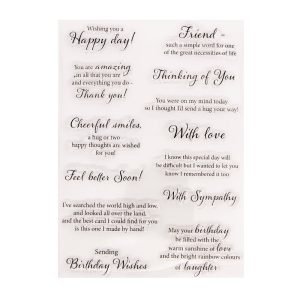 Wishing you a
Happy day!
You are amazing
in all that you are
and everything you do -
Thank you!
Cheerful smiles,
a hug or two
happy thoughts are wished
for you!
Feel better Soon!
I've searched the world high and low,
and looked all over the land,
and the best card I could find for you
is this one I made by hand!
Sending
Birthday Wishes
Friend -
such a simple word for one
of the great necessities of life
Thinking of You
You were on my mind today
so I thought I'd send a hug your way!
With love
I know this special day will
be difficult but I wanted to let you
know I remembered it too
With Sympathy
May your birthday
be filled with the
warm sunshine of love
and the bright rainbow colours
of laughter